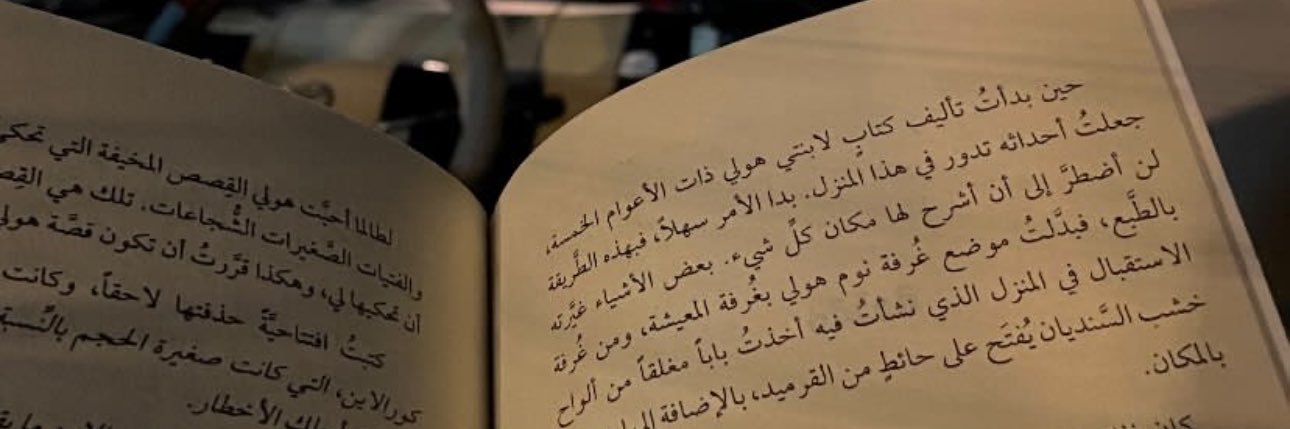 حين بدأتُ تأليف كتابٍ لابنتي هولي ذات الأعوام الخمسة،
جعلتُ أحداثه تدور في هذا المنزل. بدا الأمر سهلاً، فبهذه الطَّريقة
لن أضطرَّ إلى أن أشرح لها مكان كلِّ شيء. بعض الأشياء غيَّرته
بالطَّبع، فبدَّلتُ موضع غُرفة نوم هولي بغُرفة المعيشة، ومن غُرفة
الاستقبال في المنزل الذي نشأتُ فيه أخذتُ باباً مغلقاً من ألواح
خشب السَّنديان يُفتَح على حائطٍ من القرميد، بالإضافة إلى
بالمكان.
كان
لطالما أحبَّت هولي القِصص المخيفة التي تحكي
والفتيات الصَّغيرات الشُّجاعات. تلك هي
أن تحكيها لي، وهكذا قرَّرتُ أن تكون قصَّة هولي
كتبتُ افتتاحيَّةً حذفتها لاحقاً، وكانت
كورالاين، التي كانت صغيرة الحجم بالنِّسبة
الأخطار.